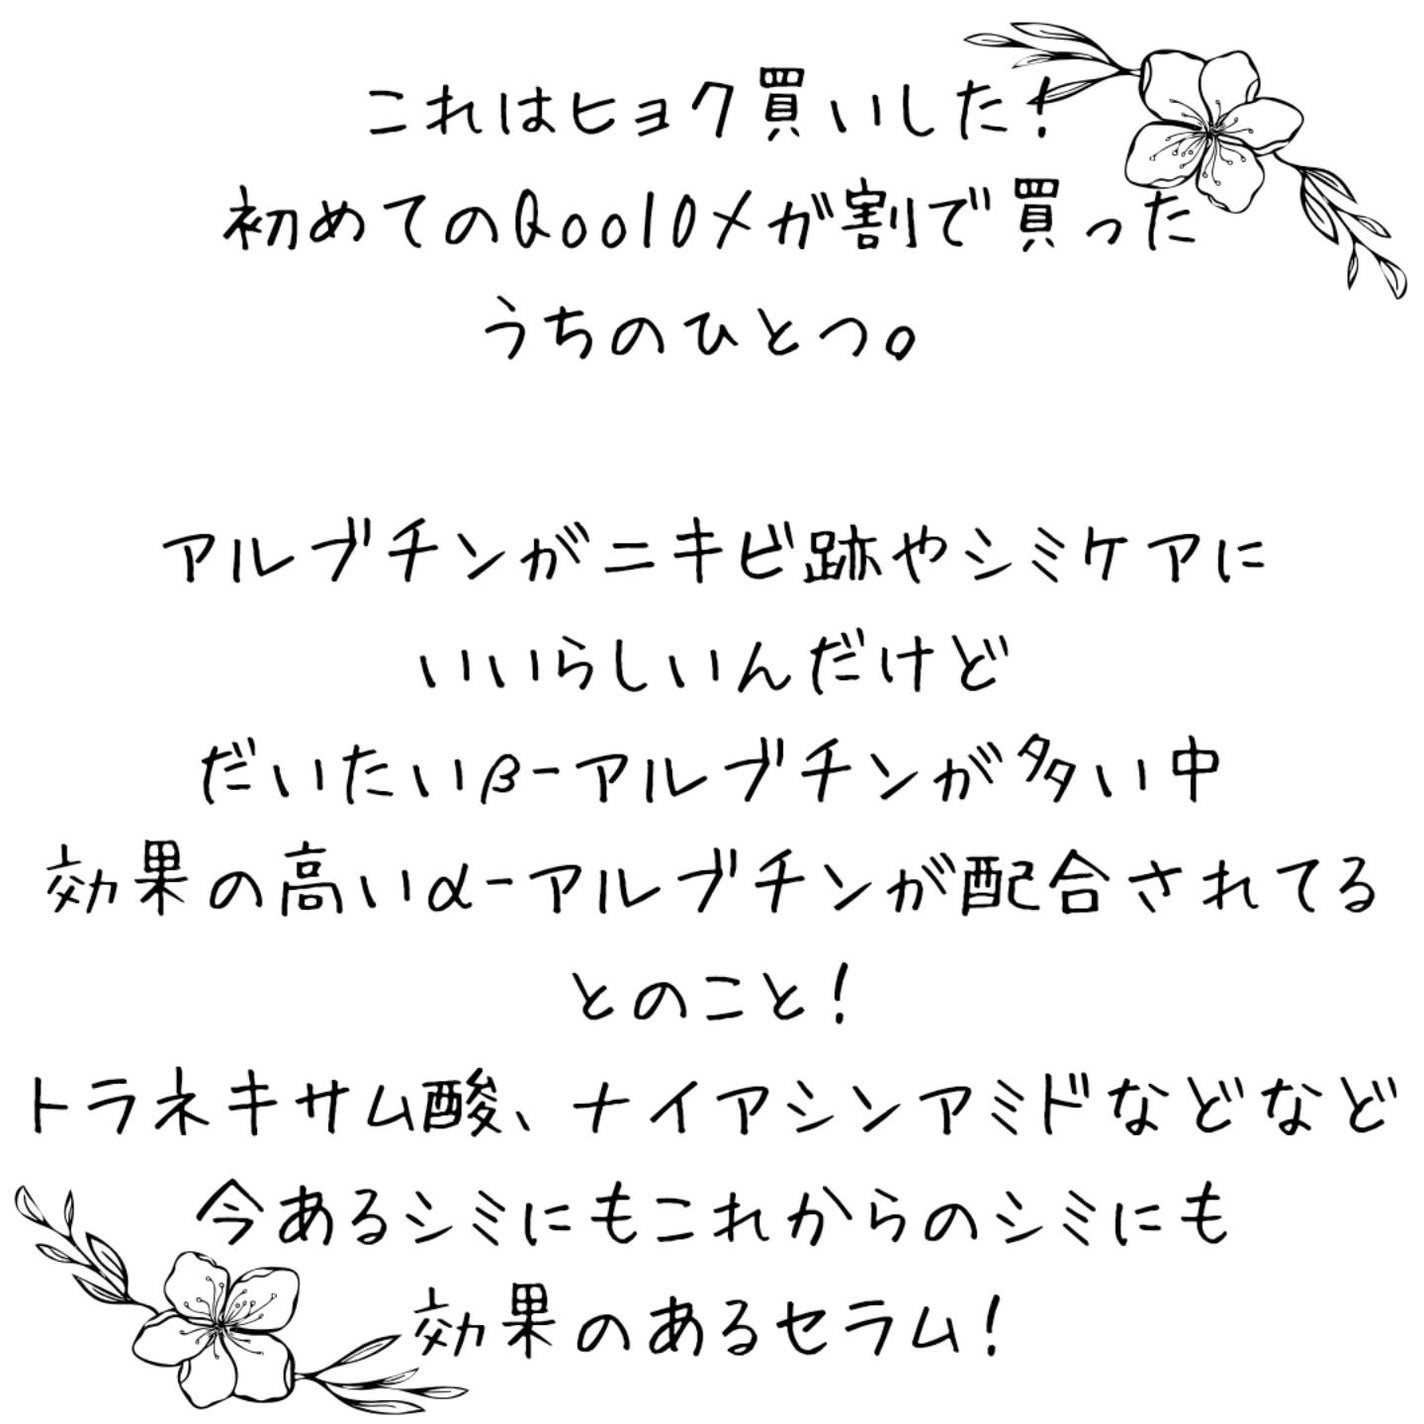 これはヒョク買いした！
初めてのQoo10メガ割で買った
うちのひとつ。
アルブチンがニキビ跡やシミケアに
いいらしいんだけど
だいたいβ-アルブチンが多い中
効果の高いα-アルブチンが配合されてる
とのこと！
トラネキサム酸、ナイアシンアミドなどなど
今あるシミにもこれからのシミにも
効果のあるセラム！